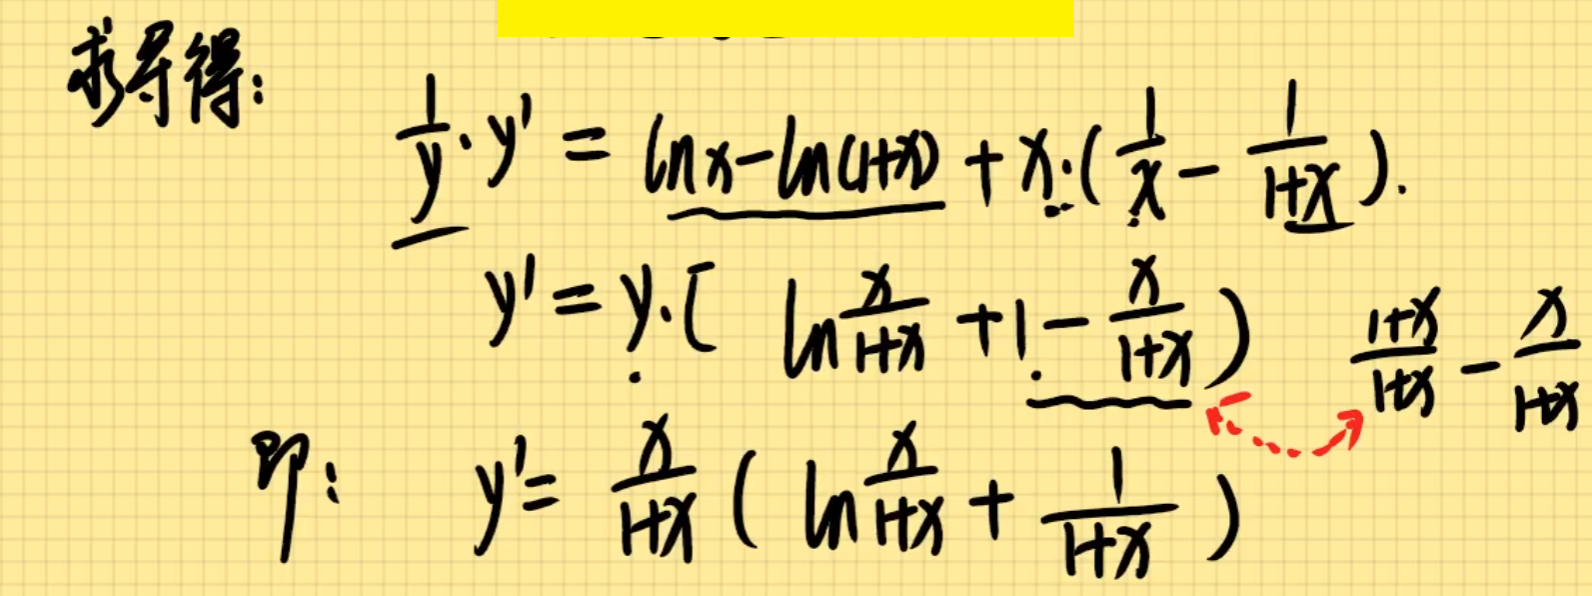 求导得:
1/y · y' = ln x - ln(1+x) + x · (1/x - 1/(1+x)).
y' = y · [ ln x/(1+x) + 1 - x/(1+x) ) (1+x)/(1+x) - x/(1+x)
即: y' = x/(1+x) ( ln x/(1+x) + 1/(1+x) )